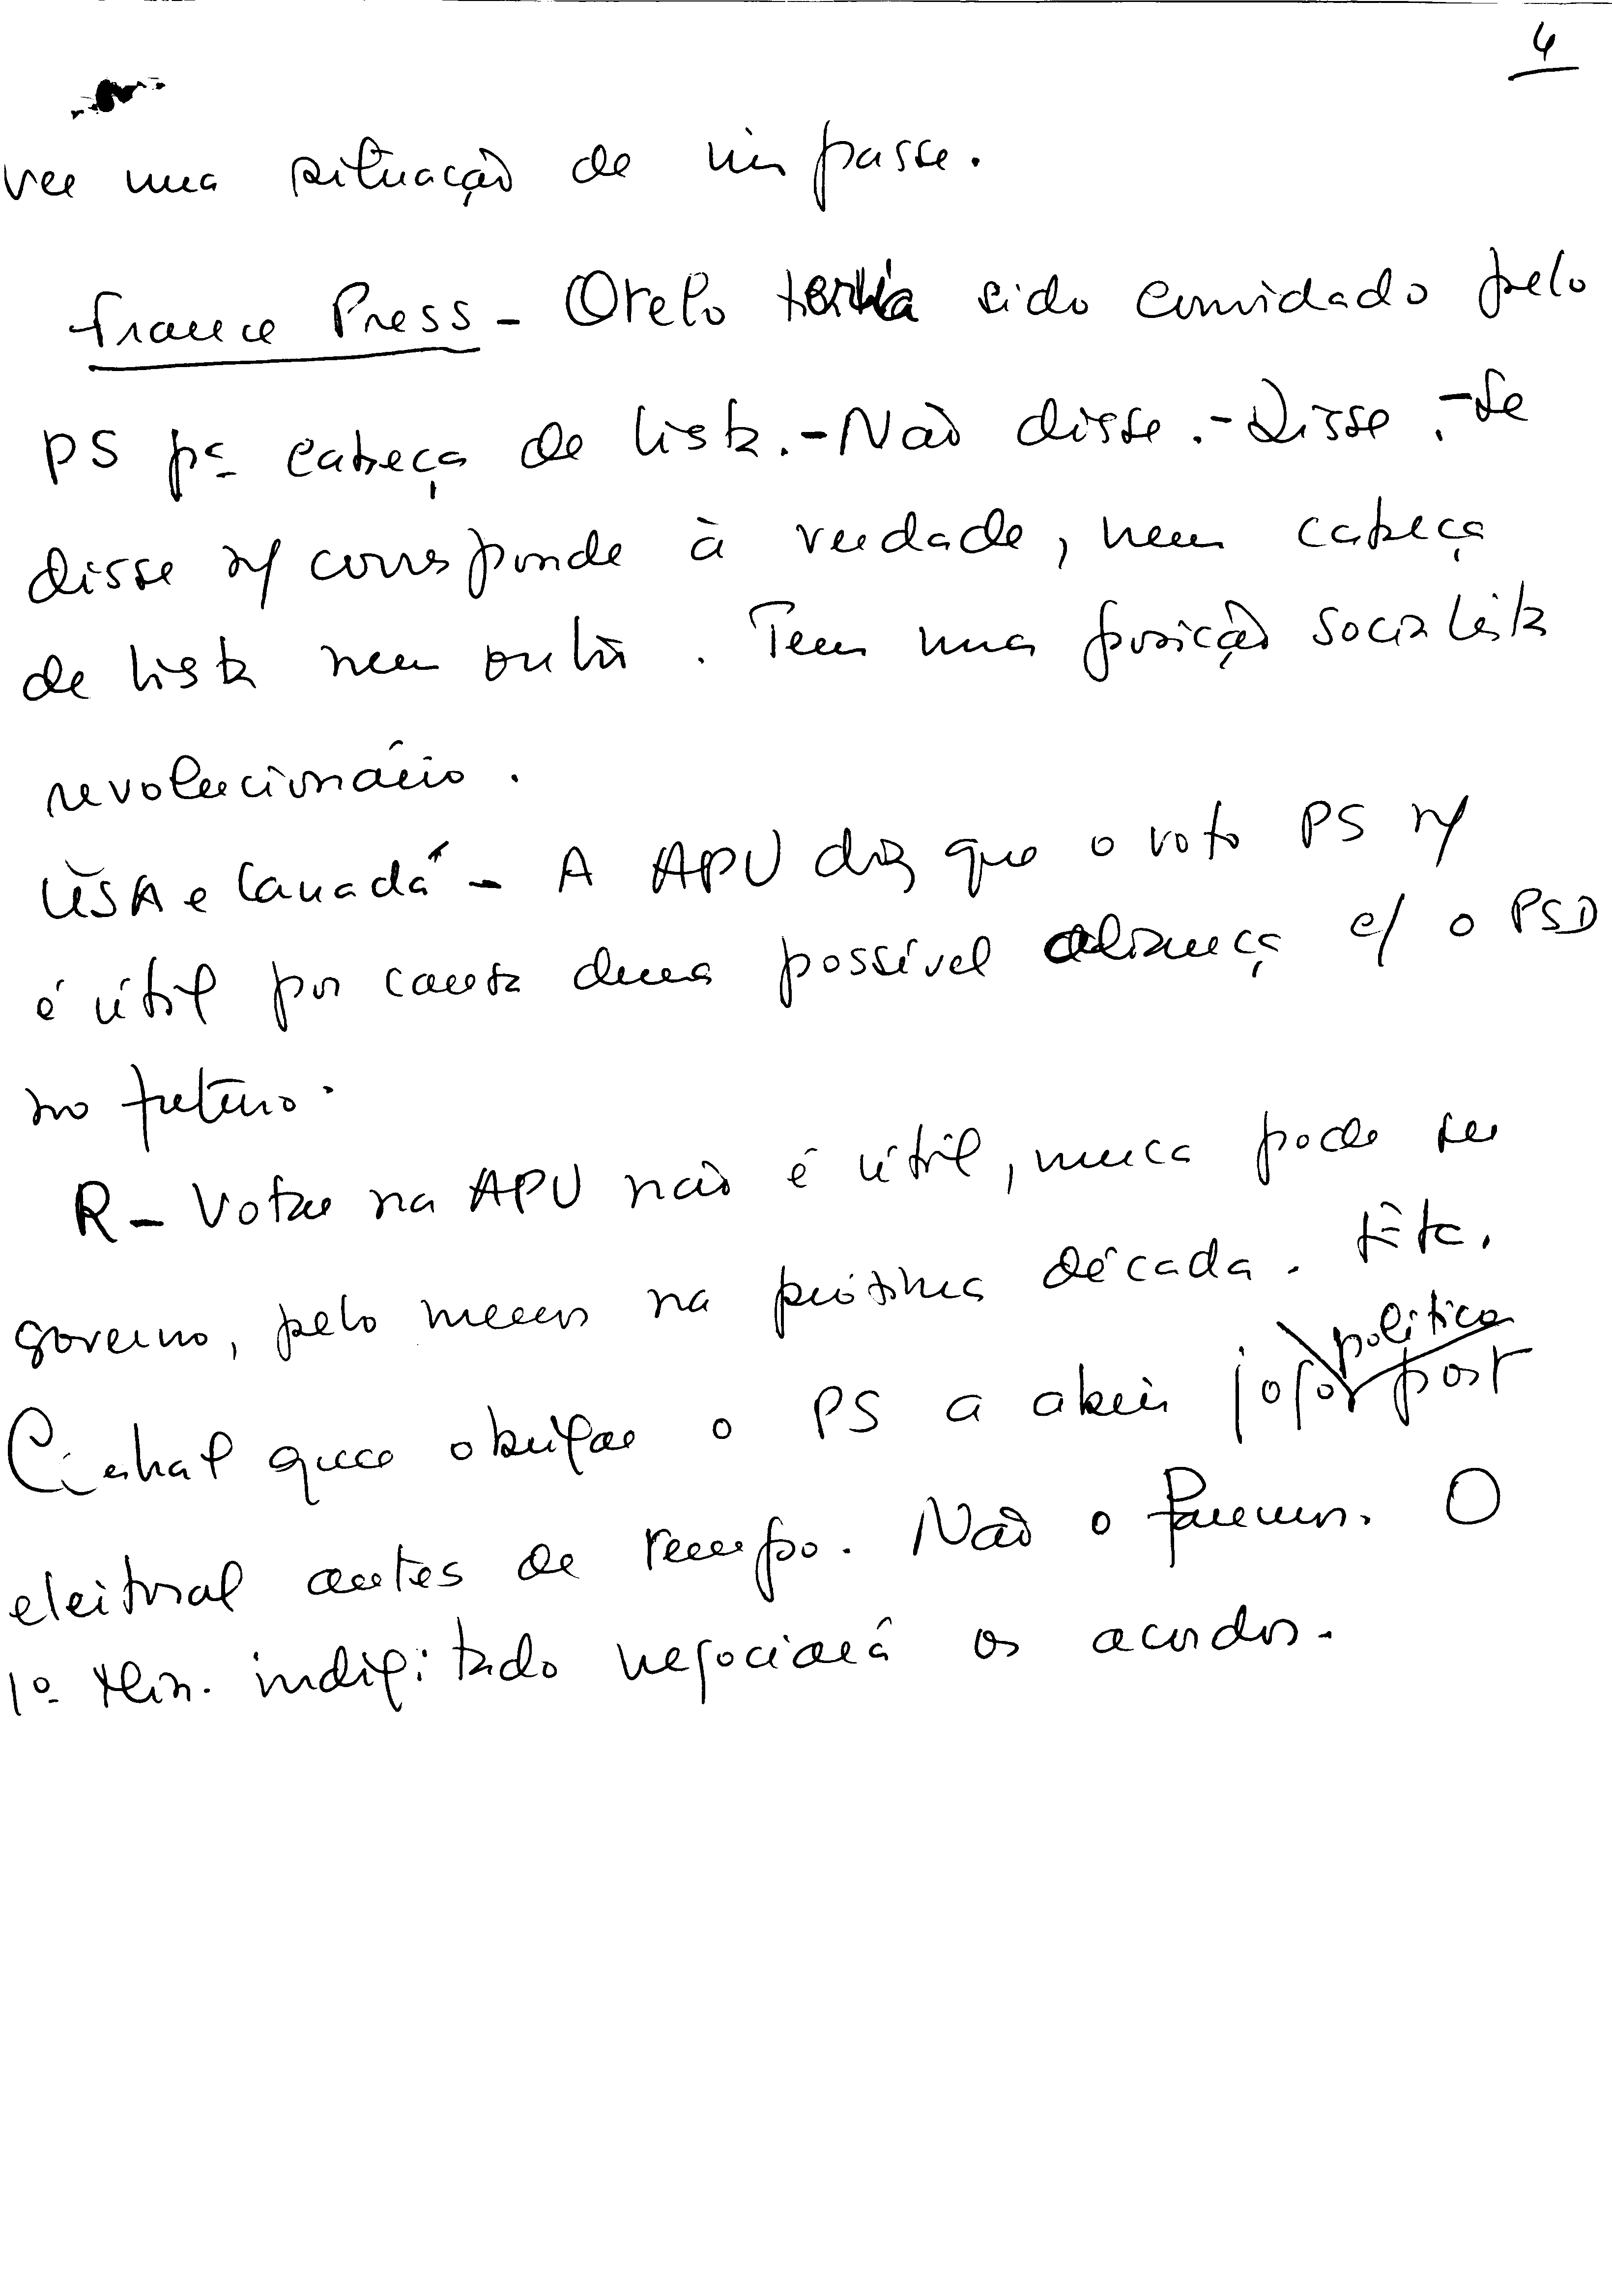 4
ver uma situação de impasse.
France Press - Otelo teria sido convidado pelo
PS pª cabeça de lista. - Não disse. - Disse. - Se
disse n/ corresponde à verdade, nem cabeça
de lista nem outra. Tem uma posição socialista
revolucionário.
USA e Canadá - A APU diz que o voto PS n/
é útil por causa duma possível aliança c/ o PSD
no futuro.
R - Votar na APU não é útil, nunca pode ser
governo, pelo menos na próxima década. Etc.
política
Cunhal quer obrigar o PS a abrir jogo post
eleitoral antes de tempo. Não o faremos. O
1º Min. indigitado negociará os acordos.